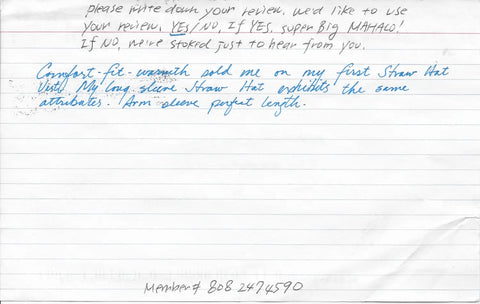 please write down your review. we'd like to use
your review. YES/NO, If YES, super Big MAHALO!
If NO, we're stoked just to hear from you.
Comfort-fit-warmth sold me on my first Straw Hat
Vest. My long sleeve Straw Hat exhibits the same
attributes. Arm sleeve perfect length.
Member# 808 2474590